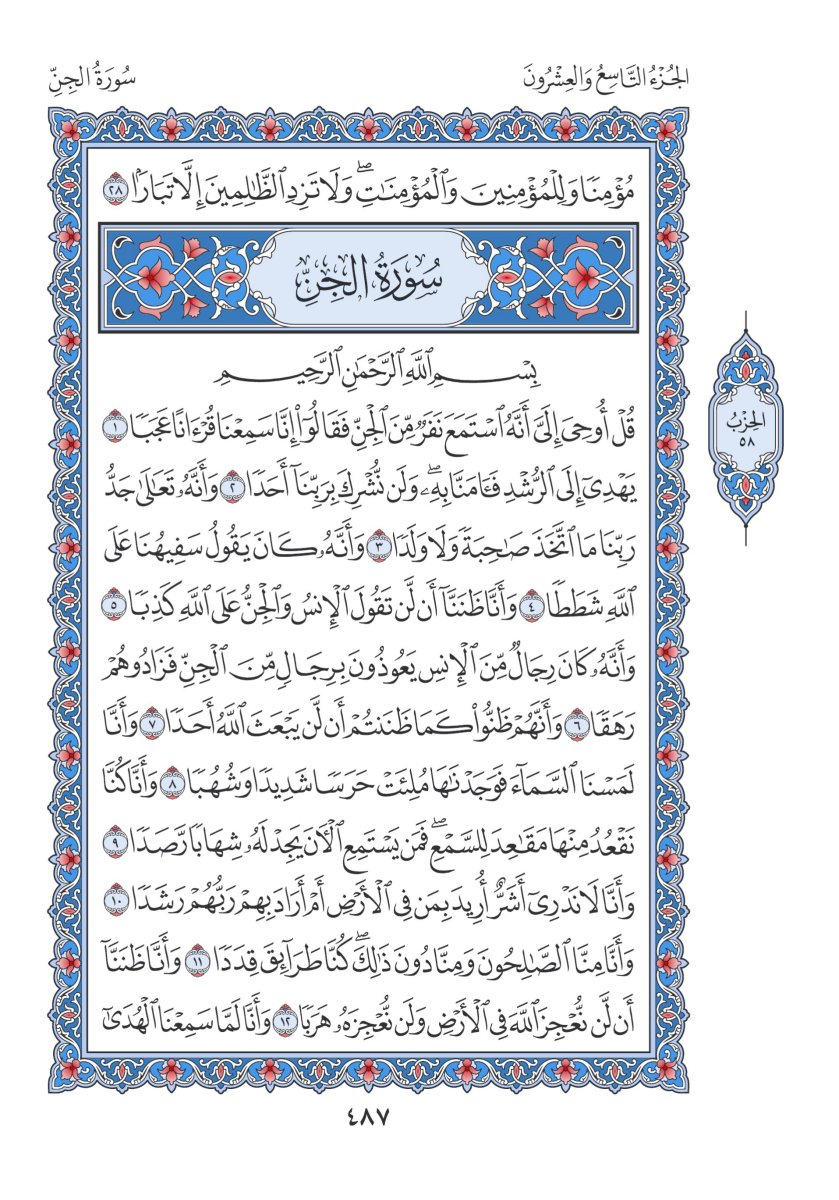 الجُزْءُ التَّاسِعُ وَالعِشْرُونَ
سُورَةُ الجِنِّ
مُؤْمِنٗا وَلِلۡمُؤۡمِنِينَ وَٱلۡمُؤۡمِنَٰتِۖ وَلَا تَزِدِ ٱلظَّٰلِمِينَ إِلَّا تَبَارَۢا ٢٨
سُورَةُ الجِنِّ
بِسۡمِ ٱللَّهِ ٱلرَّحۡمَٰنِ ٱلرَّحِيمِ
قُلۡ أُوحِيَ إِلَيَّ أَنَّهُ ٱسۡتَمَعَ نَفَرٞ مِّنَ ٱلۡجِنِّ فَقَالُوٓاْ إِنَّا سَمِعۡنَا قُرۡءَانًا عَجَبٗا ١
يَهۡدِيٓ إِلَى ٱلرُّشۡدِ فَـَٔامَنَّا بِهِۦۖ وَلَن نُّشۡرِكَ بِرَبِّنَآ أَحَدٗا ٢ وَأَنَّهُۥ تَعَٰلَىٰ جَدُّ
رَبِّنَا مَا ٱتَّخَذَ صَٰحِبَةٗ وَلَا وَلَدٗا ٣ وَأَنَّهُۥ كَانَ يَقُولُ سَفِيهُنَا عَلَى
ٱللَّهِ شَطَطٗا ٤ وَأَنَّا ظَنَنَّآ أَن لَّن تَقُولَ ٱلۡإِنسُ وَٱلۡجِنُّ عَلَى ٱللَّهِ كَذِبٗا ٥
وَأَنَّهُۥ كَانَ رِجَالٞ مِّنَ ٱلۡإِنسِ يَعُوذُونَ بِرِجَالٖ مِّنَ ٱلۡجِنِّ فَزَادُوهُمۡ
رَهَقٗا ٦ وَأَنَّهُمۡ ظَنُّواْ كَمَا ظَنَنتُمۡ أَن لَّن يَبۡعَثَ ٱللَّهُ أَحَدٗا ٧ وَأَنَّا
لَمَسۡنَا ٱلسَّمَآءَ فَوَجَدۡنَٰهَا مُلِئَتۡ حَرَسٗا شَدِيدٗا وَشُهُبٗا ٨ وَأَنَّا كُنَّا
نَقۡعُدُ مِنۡهَا مَقَٰعِدَ لِلسَّمۡعِۖ فَمَن يَسۡتَمِعِ ٱلۡأٓنَ يَجِدۡ لَهُۥ شِهَابٗا رَّصَدٗا ٩
وَأَنَّا لَا نَدۡرِيٓ أَشَرٌّ أُرِيدَ بِمَن فِي ٱلۡأَرۡضِ أَمۡ أَرَادَ بِهِمۡ رَبُّهُمۡ رَشَدٗا ١٠
وَأَنَّا مِنَّا ٱلصَّٰلِحُونَ وَمِنَّا دُونَ ذَٰلِكَۖ كُنَّا طَرَآئِقَ قِدَدٗا ١١ وَأَنَّا ظَنَنَّآ
أَن لَّن نُّعۡجِزَ ٱللَّهَ فِي ٱلۡأَرۡضِ وَلَن نُّعۡجِزَهُۥ هَرَبٗا ١٢ وَأَنَّا لَمَّا سَمِعۡنَا ٱلۡهُدَىٰٓ
الحِزْبُ
٥٨
٤٨٧